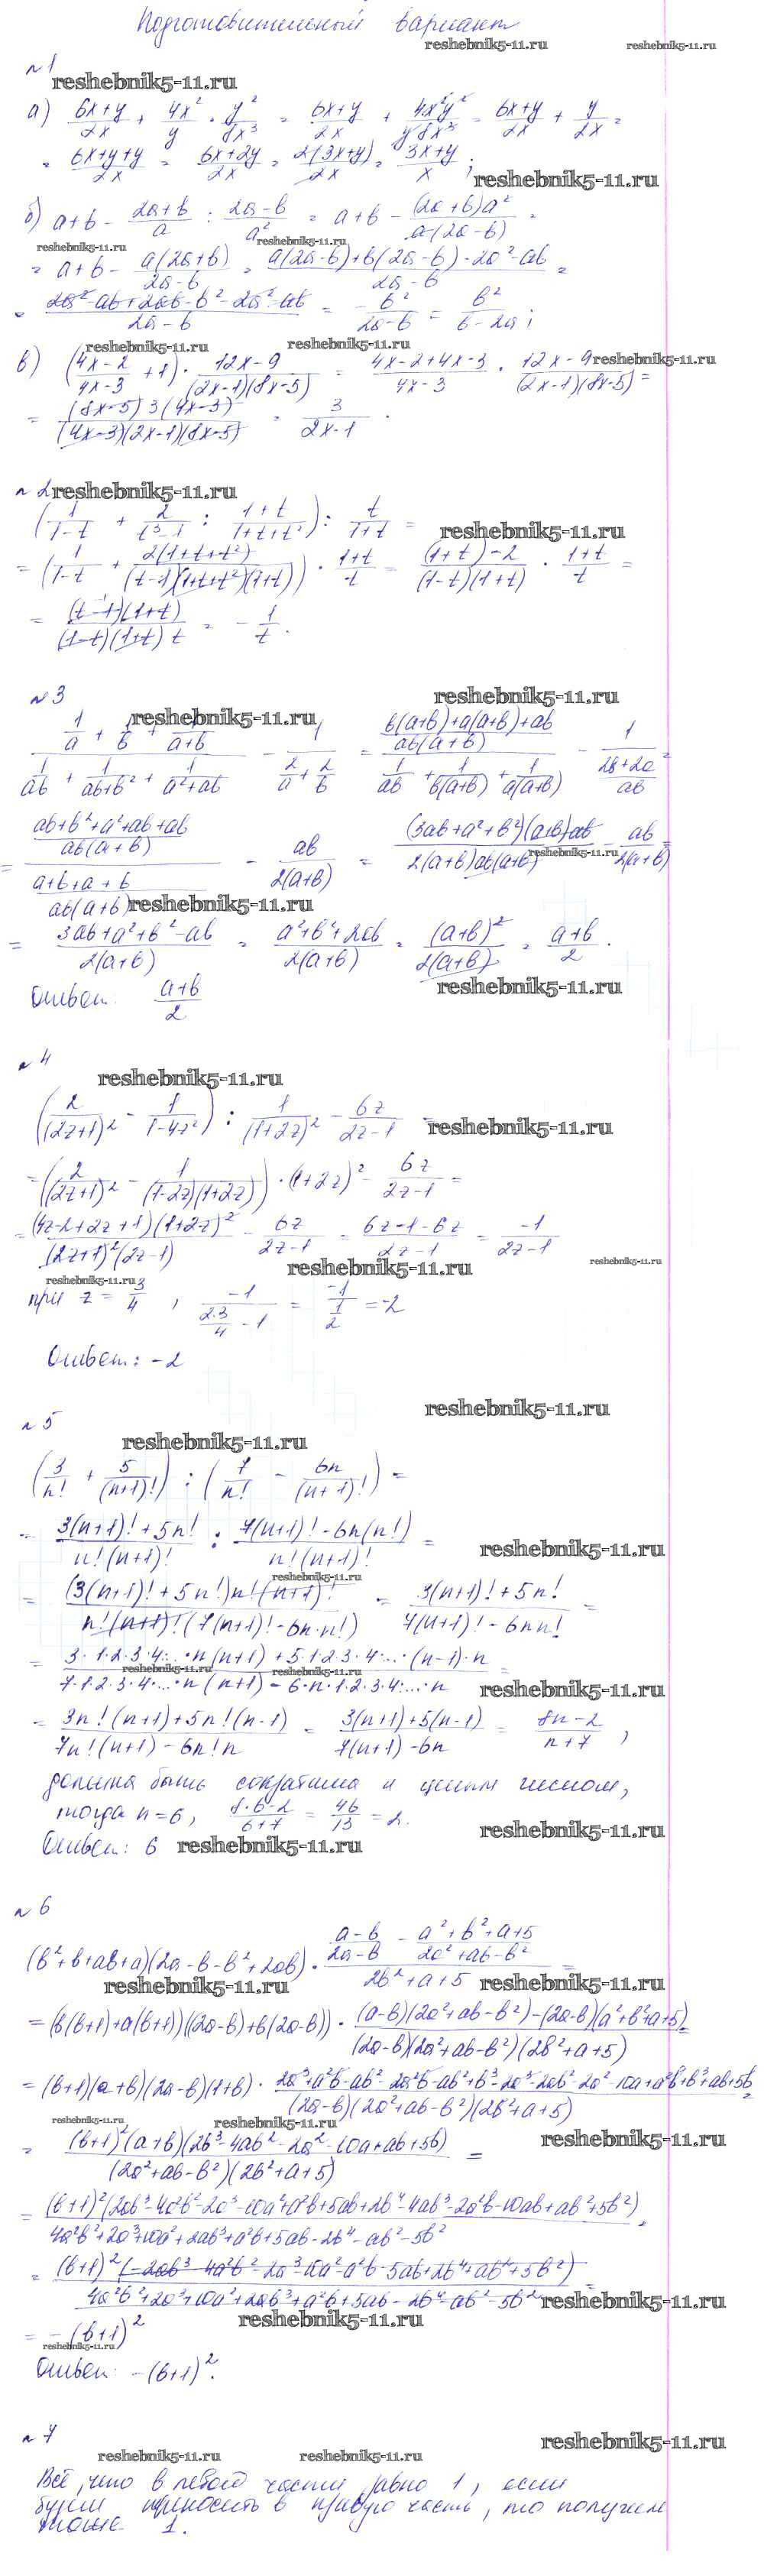 Подготовительный вариант
reshebnik5-11.ru reshebnik5-11.ru
№1
reshebnik5-11.ru
а) (6x+y)/2x + 4x²/y · y²/8x³ = (6x+y)/2x + 4x²y²/y8x³ = (6x+y)/2x + y/2x =
= (6x+y+y)/2x = (6x+2y)/2x = 2(3x+y)/2x = (3x+y)/x ;
reshebnik5-11.ru
б) a+b - (2a+b)/a : (2a-b)/a² = a+b - (2a+b)a²/a(2a-b) =
reshebnik5-11.ru reshebnik5-11.ru
= a+b - a(2a+b)/(2a-b) = (a(2a-b)+b(2a-b)-2a²-ab)/(2a-b) =
= (2a²-ab+2ab-b²-2a²-ab)/(2a-b) = -b²/(2a-b) = b²/(b-2a) ;
reshebnik5-11.ru reshebnik5-11.ru
в) ((4x-2)/(4x-3) + 1) · (12x-9)/((2x-1)(8x-5)) = (4x-2+4x-3)/(4x-3) · (12x-9)/((2x-1)(8x-5)) =
reshebnik5-11.ru
= (8x-5)3(4x-3)/((4x-3)(2x-1)(8x-5)) = 3/(2x-1) .
№2
reshebnik5-11.ru
(1/(1-t) + 2/(t³-1) : (1+t)/(1+t+t²)) : t/(1+t) =
reshebnik5-11.ru
= (1/(1-t) + 2(1+t+t²)/((t-1)(1+t+t²)(1+t))) · (1+t)/t = ((1+t)-2)/((1-t)(1+t)) · (1+t)/t =
= (t-1)(1+t)/((1-t)(1+t)t) = -1/t .
№3
reshebnik5-11.ru
reshebnik5-11.ru
(1/a + 1/b + 1/(a+b))/(1/ab + 1/(ab+b²) + 1/(a²+ab)) - 1/(2/a + 2/b) = ((b(a+b)+a(a+b)+ab)/ab(a+b))/(1/ab + 1/b(a+b) + 1/a(a+b)) - 1/((2b+2a)/ab) =
= ((ab+b²+a²+ab+ab)/ab(a+b))/((a+b+a+b)/ab(a+b)) - ab/2(a+b) = (3ab+a²+b²)(a+b)ab/2(a+b)ab(a+b) - ab/2(a+b) =
reshebnik5-11.ru
reshebnik5-11.ru
= (3ab+a²+b²-ab)/2(a+b) = (a²+b²+2ab)/2(a+b) = (a+b)²/2(a+b) = (a+b)/2 .
Ответ: (a+b)/2
reshebnik5-11.ru
№4
reshebnik5-11.ru
(2/(2z+1)² - 1/(1-4z²)) : 1/(1+2z)² - 6z/(2z-1) =
reshebnik5-11.ru
= (2/(2z+1)² - 1/((1-2z)(1+2z))) · (1+2z)² - 6z/(2z-1) =
= (4z-2+2z+1)(1+2z)²/((2z+1)²(2z-1)) - 6z/(2z-1) = (6z-1-6z)/(2z-1) = -1/(2z-1)
reshebnik5-11.ru
reshebnik5-11.ru
reshebnik5-11.ru
при z = 3/4 , -1/(2·3/4 - 1) = -1/(1/2) = -2
Ответ: -2
reshebnik5-11.ru
№5
reshebnik5-11.ru
(3/n! + 5/(n+1)!) : (7/n! - 6n/(n+1)!) =
= (3(n+1)!+5n!)/n!(n+1)! : (7(n+1)!-6n(n!))/n!(n+1)! =
reshebnik5-11.ru
reshebnik5-11.ru
= (3(n+1)!+5n!)n!(n+1)!/n!(n+1)!(7(n+1)!-6n·n!) = (3(n+1)!+5n!)/(7(n+1)!-6nn!) =
= (3·1·2·3·4·...·n(n+1)+5·1·2·3·4·...·(n-1)·n)/(7·1·2·3·4·...·n(n+1)-6·n·1·2·3·4·...·n) =
reshebnik5-11.ru reshebnik5-11.ru
reshebnik5-11.ru
= (3n!(n+1)+5n!(n-1))/(7n!(n+1)-6n!n) = (3(n+1)+5(n-1))/(7(n+1)-6n) = (8n-2)/(n+7) ,
должна быть сократима и целым числом,
тогда n=6, (8·6-2)/(6+7) = 46/13 = 2.
reshebnik5-11.ru
Ответ: 6
reshebnik5-11.ru
№6
(b²+b+ab+a)(2a-b-b²+2ab) · ((a-b)/(2a-b) - (a²+b²+a+5)/(2a²+ab-b²))/(2b²+a+5) =
reshebnik5-11.ru reshebnik5-11.ru
= (b(b+1)+a(b+1))((2a-b)+b(2a-b)) · ((a-b)(2a²+ab-b²)-(2a-b)(a²+b²+a+5))/((2a-b)(2a²+ab-b²)(2b²+a+5)) =
= (b+1)(a+b)(2a-b)(1+b) · (2a³+a²b-ab²-2a²b-ab²+b³-2a³-2ab²-2a²-10a+a²b+b³+ab+5b)/((2a-b)(2a²+ab-b²)(2b²+a+5)) =
reshebnik5-11.ru reshebnik5-11.ru
reshebnik5-11.ru
= (b+1)²(a+b)(2b³-4ab²-2a²-10a+ab+5b)/((2a²+ab-b²)(2b²+a+5)) =
= (b+1)²(2ab³-4a²b²-2a³-10a²+a²b+5ab+2b⁴-4ab³-2a²b-10ab+ab²+5b²)/(4a²b²+2a³+10a²+2ab³+a²b+5ab-2b⁴-ab²-5b²) =
= (b+1)²(-2ab³-4a²b²-2a³-10a²-a²b-5ab+2b⁴+ab²+5b²)/(4a²b²+2a³+10a²+2ab³+a²b+5ab-2b⁴-ab²-5b²) =
reshebnik5-11.ru
reshebnik5-11.ru
= -(b+1)²
reshebnik5-11.ru
Ответ: -(b+1)².
№7
reshebnik5-11.ru
reshebnik5-11.ru reshebnik5-11.ru
Всё, что в левой части равно 1, если
будем приносить в правую часть, то получим
тоже 1.